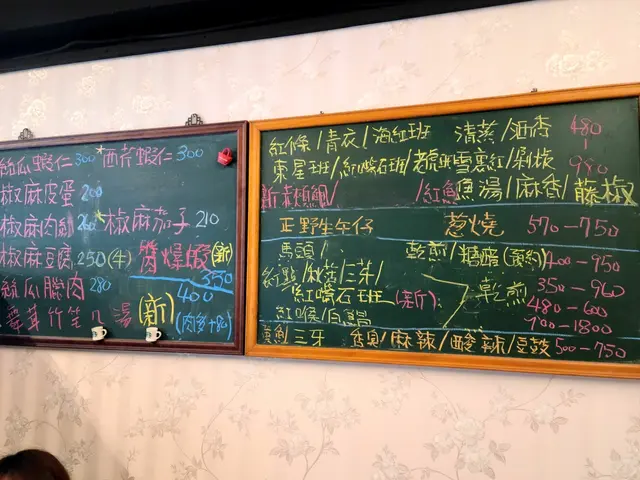 絲瓜蝦仁 300 西芹蝦仁 300
椒麻皮蛋 200
椒麻肉 260 椒麻茄子 210
椒麻豆腐 250(牛) 爆 (新) 350
絲瓜臘肉 280 400
竹笙 湯 (新) (肉多+80)
紅條/青衣/海紅班 清蒸/酒香 480
東星班/紅嘴石班/老虎班 雪裏紅/剁椒 980
/紅魚 魚湯/麻香/藤椒
正野生午仔 蔥燒 570-750
馬頭/ 乾煎/糖醋(預約) 400-950
三牙/ 乾煎 350-960
紅嘴石班(新) 480-600
700-1800
三牙 香/麻辣/酸辣/豆豉 500-750